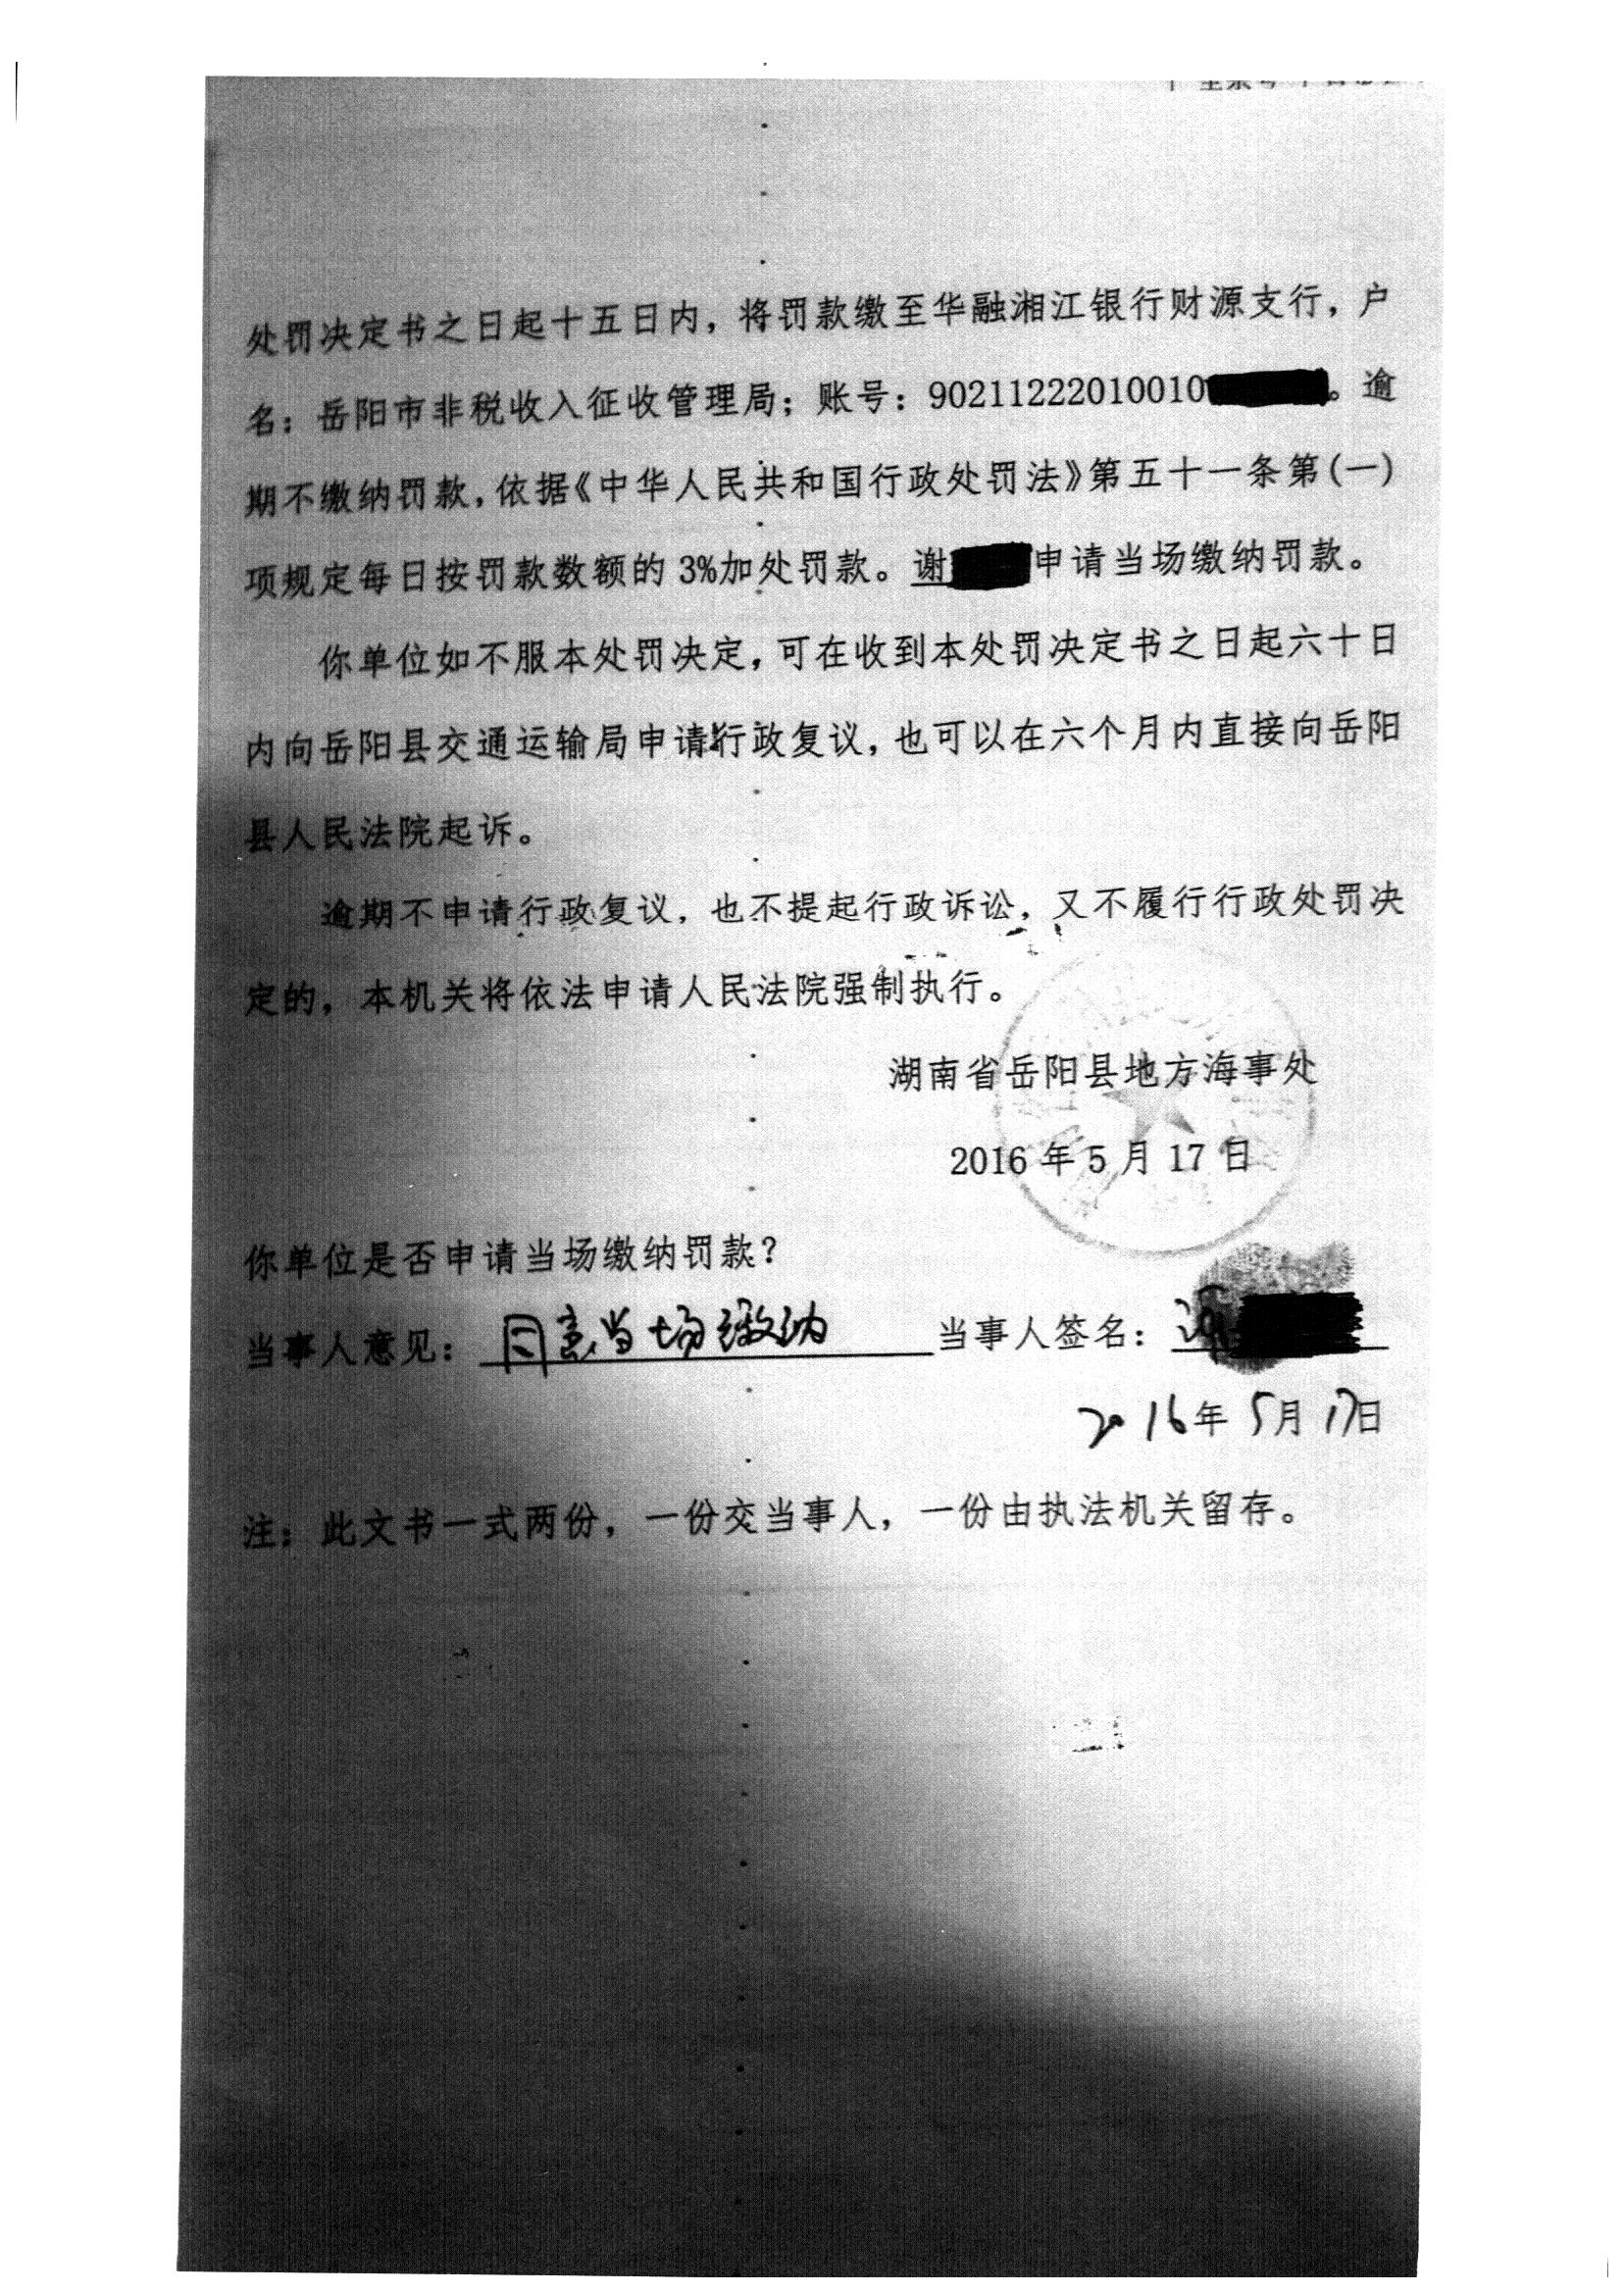 处罚决定书之日起十五日内，将罚款缴至华融湘江银行财源支行，户
名：岳阳市非税收入征收管理局；账号：90211222010010。逾
期不缴纳罚款，依据《中华人民共和国行政处罚法》第五十一条第(一)
项规定每日按罚款数额的3%加处罚款。谢申请当场缴纳罚款。
你单位如不服本处罚决定，可在收到本处罚决定书之日起六十日
内向岳阳县交通运输局申请行政复议，也可以在六个月内直接向岳阳
县人民法院起诉。
逾期不申请行政复议，也不提起行政诉讼，又不履行行政处罚决
定的，本机关将依法申请人民法院强制执行。
湖南省岳阳县地方海事处
2016年5月17日
你单位是否申请当场缴纳罚款？
当事人意见：同意当场缴纳 当事人签名：谢
2016年5月17日
注：此文书一式两份，一份交当事人，一份由执法机关留存。